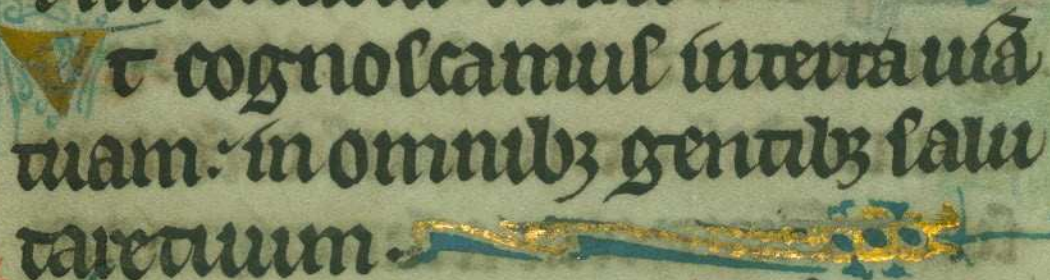 Vt cognoscamus interra uiã
tuam: in omnibꝫ gentibꝫ salu
taretuum.